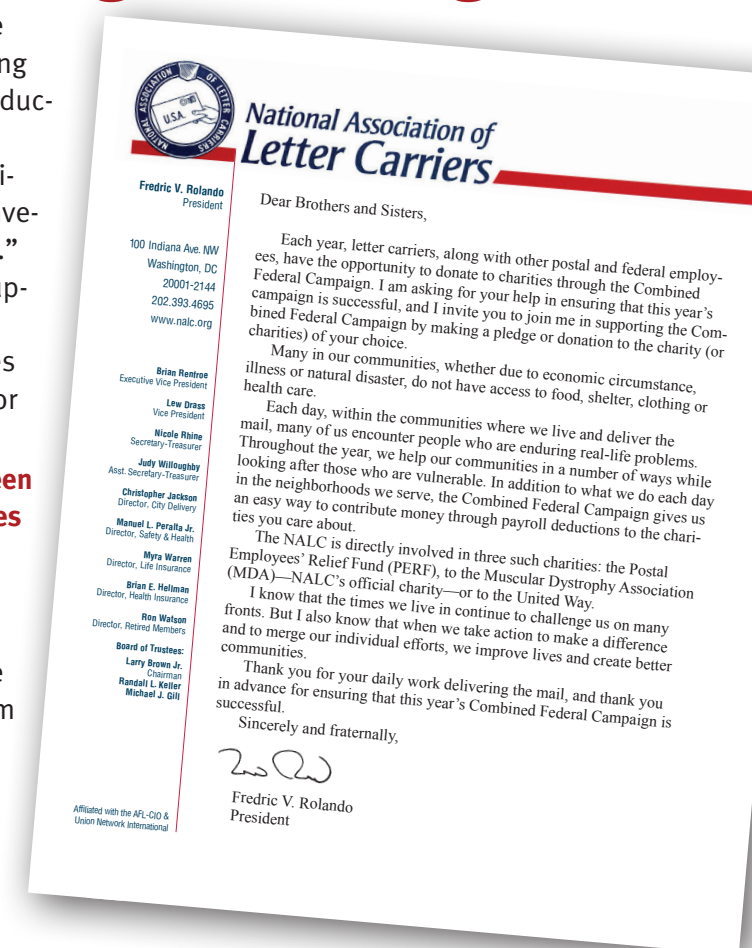 e
ng
duc-
i-
ve-
.”
up-
es
or
een
es
e
m
NATIONAL ASSOCIATION OF LETTER CARRIERS
U.S.A.
National Association of
Letter Carriers
Fredric V. Rolando
President
100 Indiana Ave. NW
Washington, DC
20001-2144
202.393.4695
www.nalc.org
Brian Renfroe
Executive Vice President
Lew Drass
Vice President
Nicole Rhine
Secretary-Treasurer
Judy Willoughby
Asst. Secretary-Treasurer
Christopher Jackson
Director, City Delivery
Manuel L. Peralta Jr.
Director, Safety & Health
Myra Warren
Director, Life Insurance
Brian E. Hellman
Director, Health Insurance
Ron Watson
Director, Retired Members
Board of Trustees:
Larry Brown Jr.
Chairman
Randall L. Keller
Michael J. Gill
Affiliated with the AFL-CIO &
Union Network International
Dear Brothers and Sisters,
Each year, letter carriers, along with other postal and federal employ-
ees, have the opportunity to donate to charities through the Combined
Federal Campaign. I am asking for your help in ensuring that this year’s
campaign is successful, and I invite you to join me in supporting the Com-
bined Federal Campaign by making a pledge or donation to the charity (or
charities) of your choice.
Many in our communities, whether due to economic circumstance,
illness or natural disaster, do not have access to food, shelter, clothing or
health care.
Each day, within the communities where we live and deliver the
mail, many of us encounter people who are enduring real-life problems.
Throughout the year, we help our communities in a number of ways while
looking after those who are vulnerable. In addition to what we do each day
in the neighborhoods we serve, the Combined Federal Campaign gives us
an easy way to contribute money through payroll deductions to the chari-
ties you care about.
The NALC is directly involved in three such charities: the Postal
Employees’ Relief Fund (PERF), to the Muscular Dystrophy Association
(MDA)—NALC’s official charity—or to the United Way.
I know that the times we live in continue to challenge us on many
fronts. But I also know that when we take action to make a difference
and to merge our individual efforts, we improve lives and create better
communities.
Thank you for your daily work delivering the mail, and thank you
in advance for ensuring that this year’s Combined Federal Campaign is
successful.
Sincerely and fraternally,
Fredric V. Rolando
President